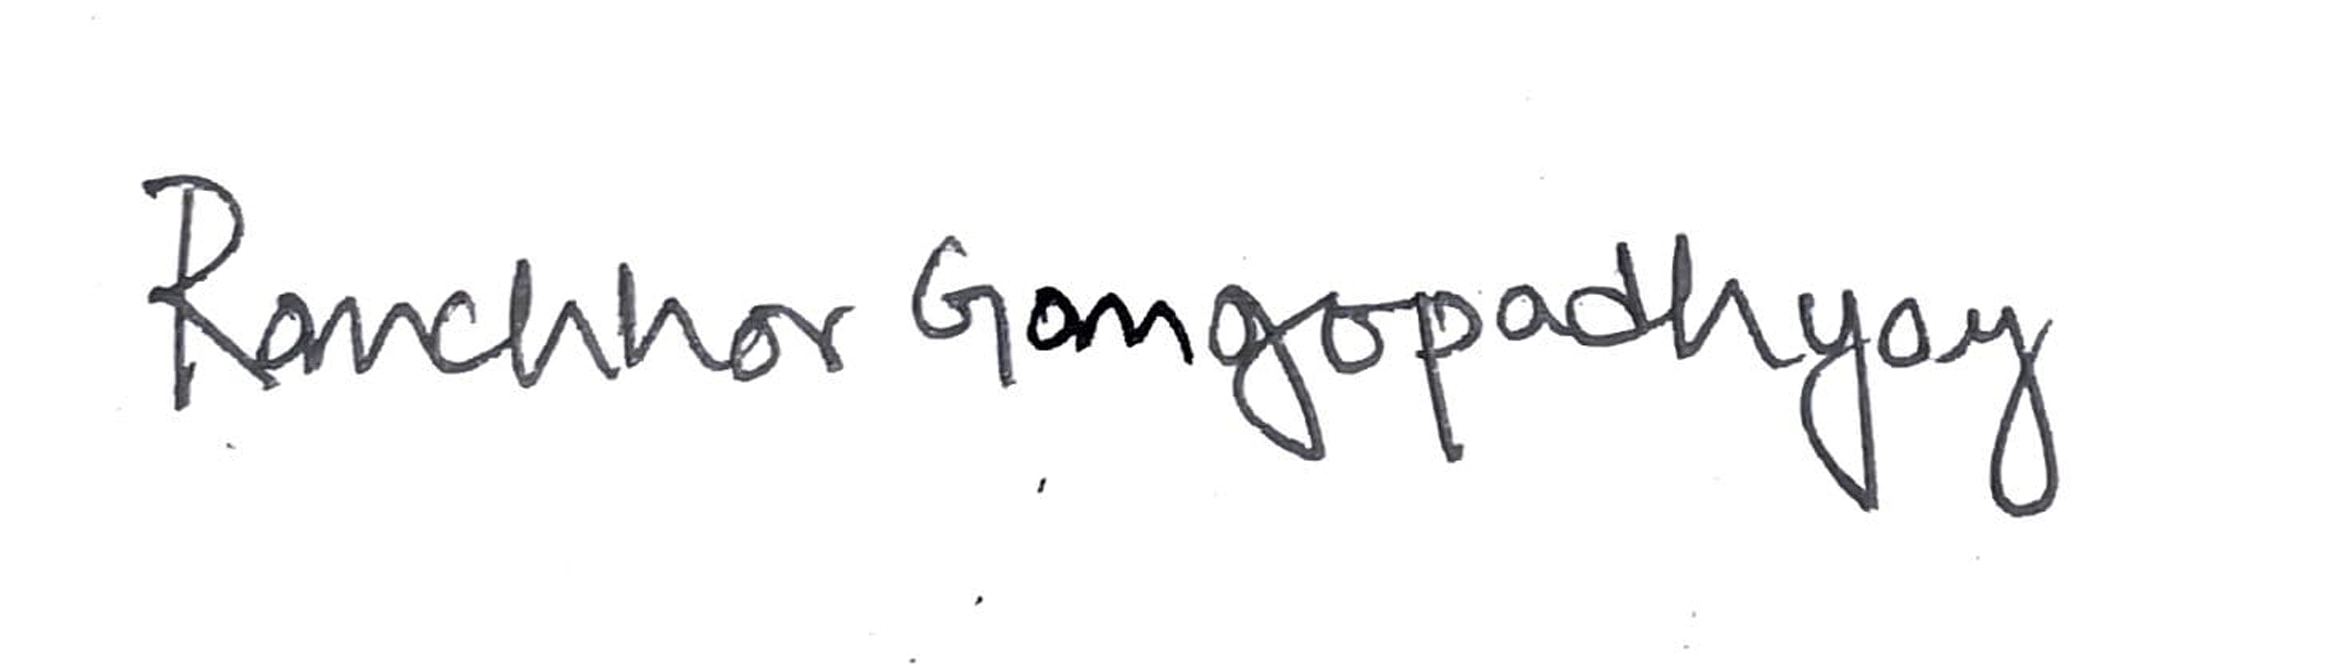 Ranchhor Gangopadhyay